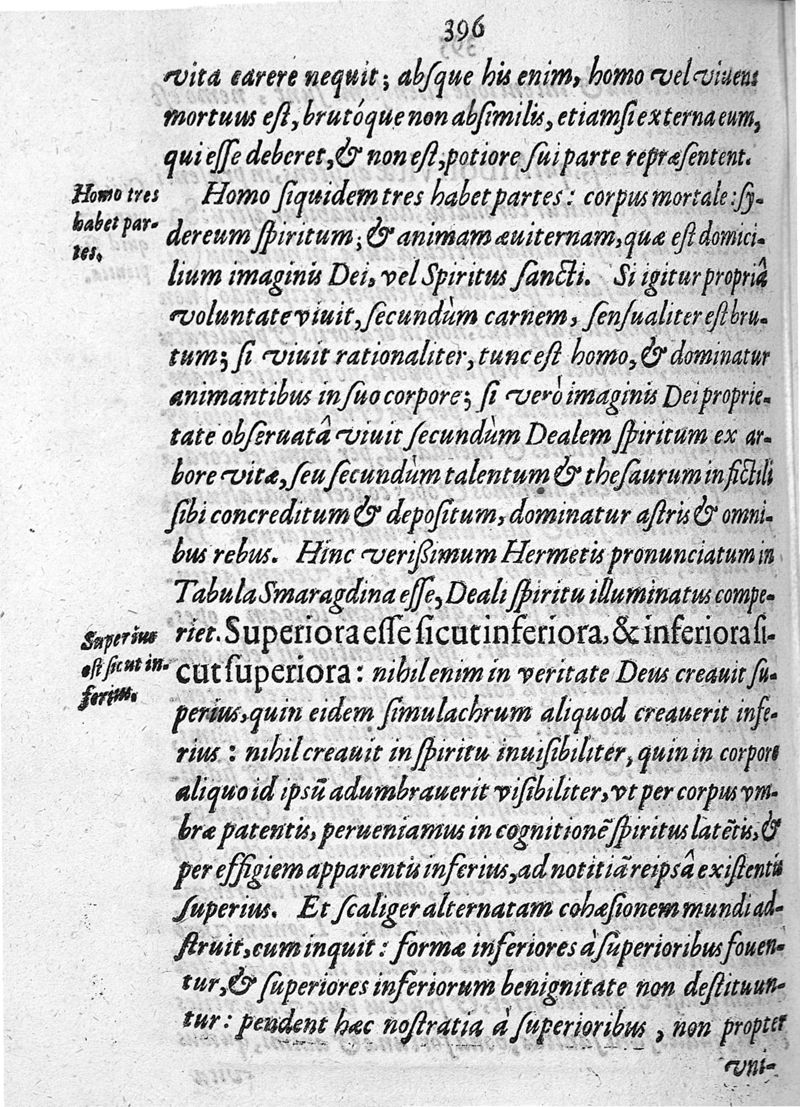 396
vita carere nequit; absque his enim, homo vel viuens
mortuus est, brutóque non absimilis, etiamsi externa eum,
qui esse deberet, & non est, potiore sui parte repræsentent.
Homo tres
habet par-
tes.
Homo siquidem tres habet partes: corpus mortale: sy-
dereum spiritum; & animam æuiternam, quæ est domici-
lium imaginis Dei, vel Spiritus sancti. Si igitur propriâ
voluntate viuit, secundùm carnem, sensualiter est bru-
tum; si viuit rationaliter, tunc est homo, & dominatur
animantibus in suo corpore; si verò imaginis Dei proprie-
tate obseruatâ viuit secundùm Dealem spiritum ex ar-
bore vitæ, seu secundùm talentum & thesaurum in fictili
sibi concreditum & depositum, dominatur astris & omni-
bus rebus. Hinc verißimum Hermetis pronunciatum in
Tabula Smaragdina esse, Deali spiritu illuminatus compe-
Superius
est sicut in-
ferius.
riet. Superiora esse sicut inferiora, & inferiora si-
cut superiora: nihil enim in veritate Deus creauit su-
perius, quin eidem simulachrum aliquod creauerit infe-
rius: nihil creauit in spiritu inuisibiliter, quin in corpore
aliquo id ipsũ adumbrauerit visibiliter, vt per corpus vm-
bræ patentis, perueniamus in cognitionẽ spiritus latẽtis, &
per effigiem apparentis inferius, ad notitiã reipsâ existentis
superius. Et scaliger alternatam cohæsionem mundi ad-
struit, cum inquit: formæ inferiores à superioribus fouen-
tur, & superiores inferiorum benignitate non destituun-
tur: pendent hæc nostratia à superioribus, non propter
vni-